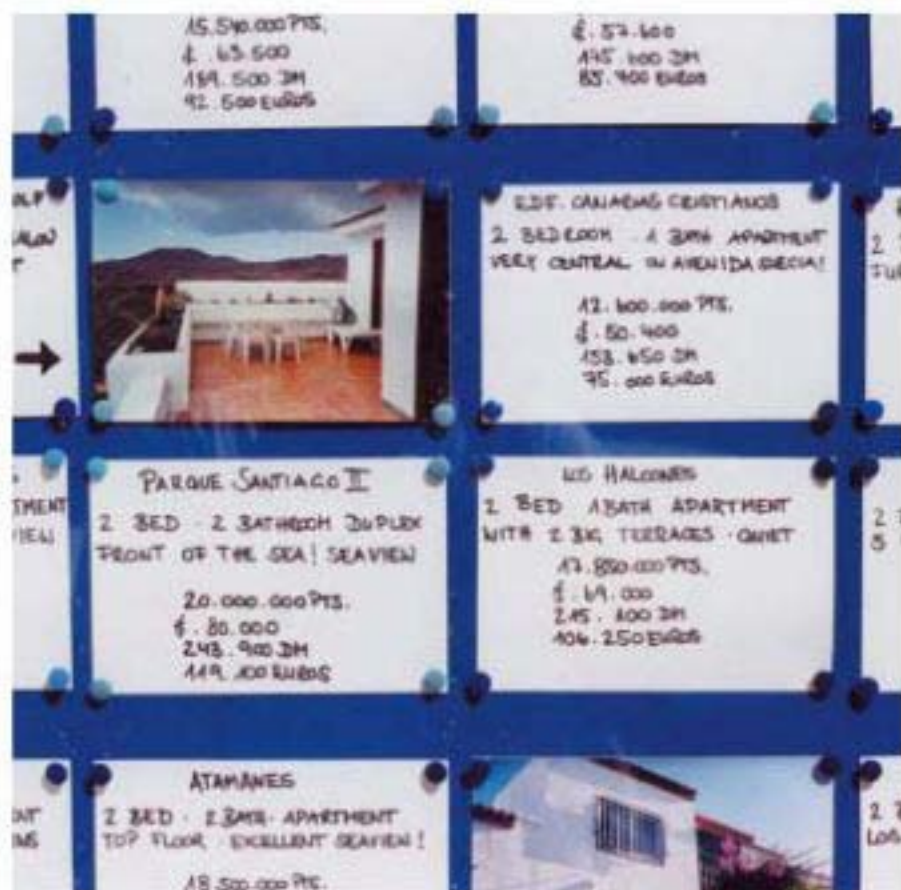 15.540.000 PTS.
£. 63.500
189.500 DM
92.500 EUROS
£. 57.600
175.600 DM
85.700 EUROS
EDF. CANARIAS CRISTIANOS
2 BEDROOM · 1 BATH APARTMENT
VERY CENTRAL IN AVENIDA SUECIA!
12.600.000 PTS.
£. 50.400
153.650 DM
75.000 EUROS
PARQUE SANTIAGO II
2 BED · 2 BATHROOM DUPLEX
FRONT OF THE SEA! SEAVIEW
20.000.000 PTS.
£. 80.000
243.900 DM
119.100 EUROS
LOS HALCONES
2 BED 1 BATH APARTMENT
WITH 2 BIG TERRACES · QUIET
17.850.000 PTS.
£. 69.000
215.600 DM
106.250 EUROS
ATAMANES
2 BED · 2 BATH · APARTMENT
TOP FLOOR · EXCELLENT SEAVIEW!
18.500.000 PTS.